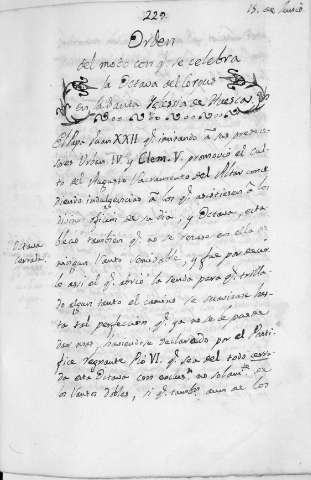 229.
15. de Junio
Orden
del modo con q.e se celebra
la Octava del Corpus
en la Santa Iglesia de Huesca.
El Papa Juan XXII q.e imitando à sus prede-
sores Urban. IV. y Clem. V. promovió el cul-
to del Augusto Sacramento del Altar conce-
diendo indulgencias à los q.e asistieren à los
divinos oficios de su dia, y Octava, esta-
bleció tambien q.e no se rezase en ella de
ningun Santo semidoble, y fue por decir-
lo asi el q.e abrió la senda para q.e trilla-
do algun tanto el camino se suavizase has-
ta tal perfeccion q.e ya no se le puede
dar mas, haviendose declarado por el Ponti-
fice reynante Pio VI. q.e sea del todo cerra-
da esta Octava con exclus.n no solam.te de
los Santos dobles, si q.e tambien aun de los
Octava
Cerrada.